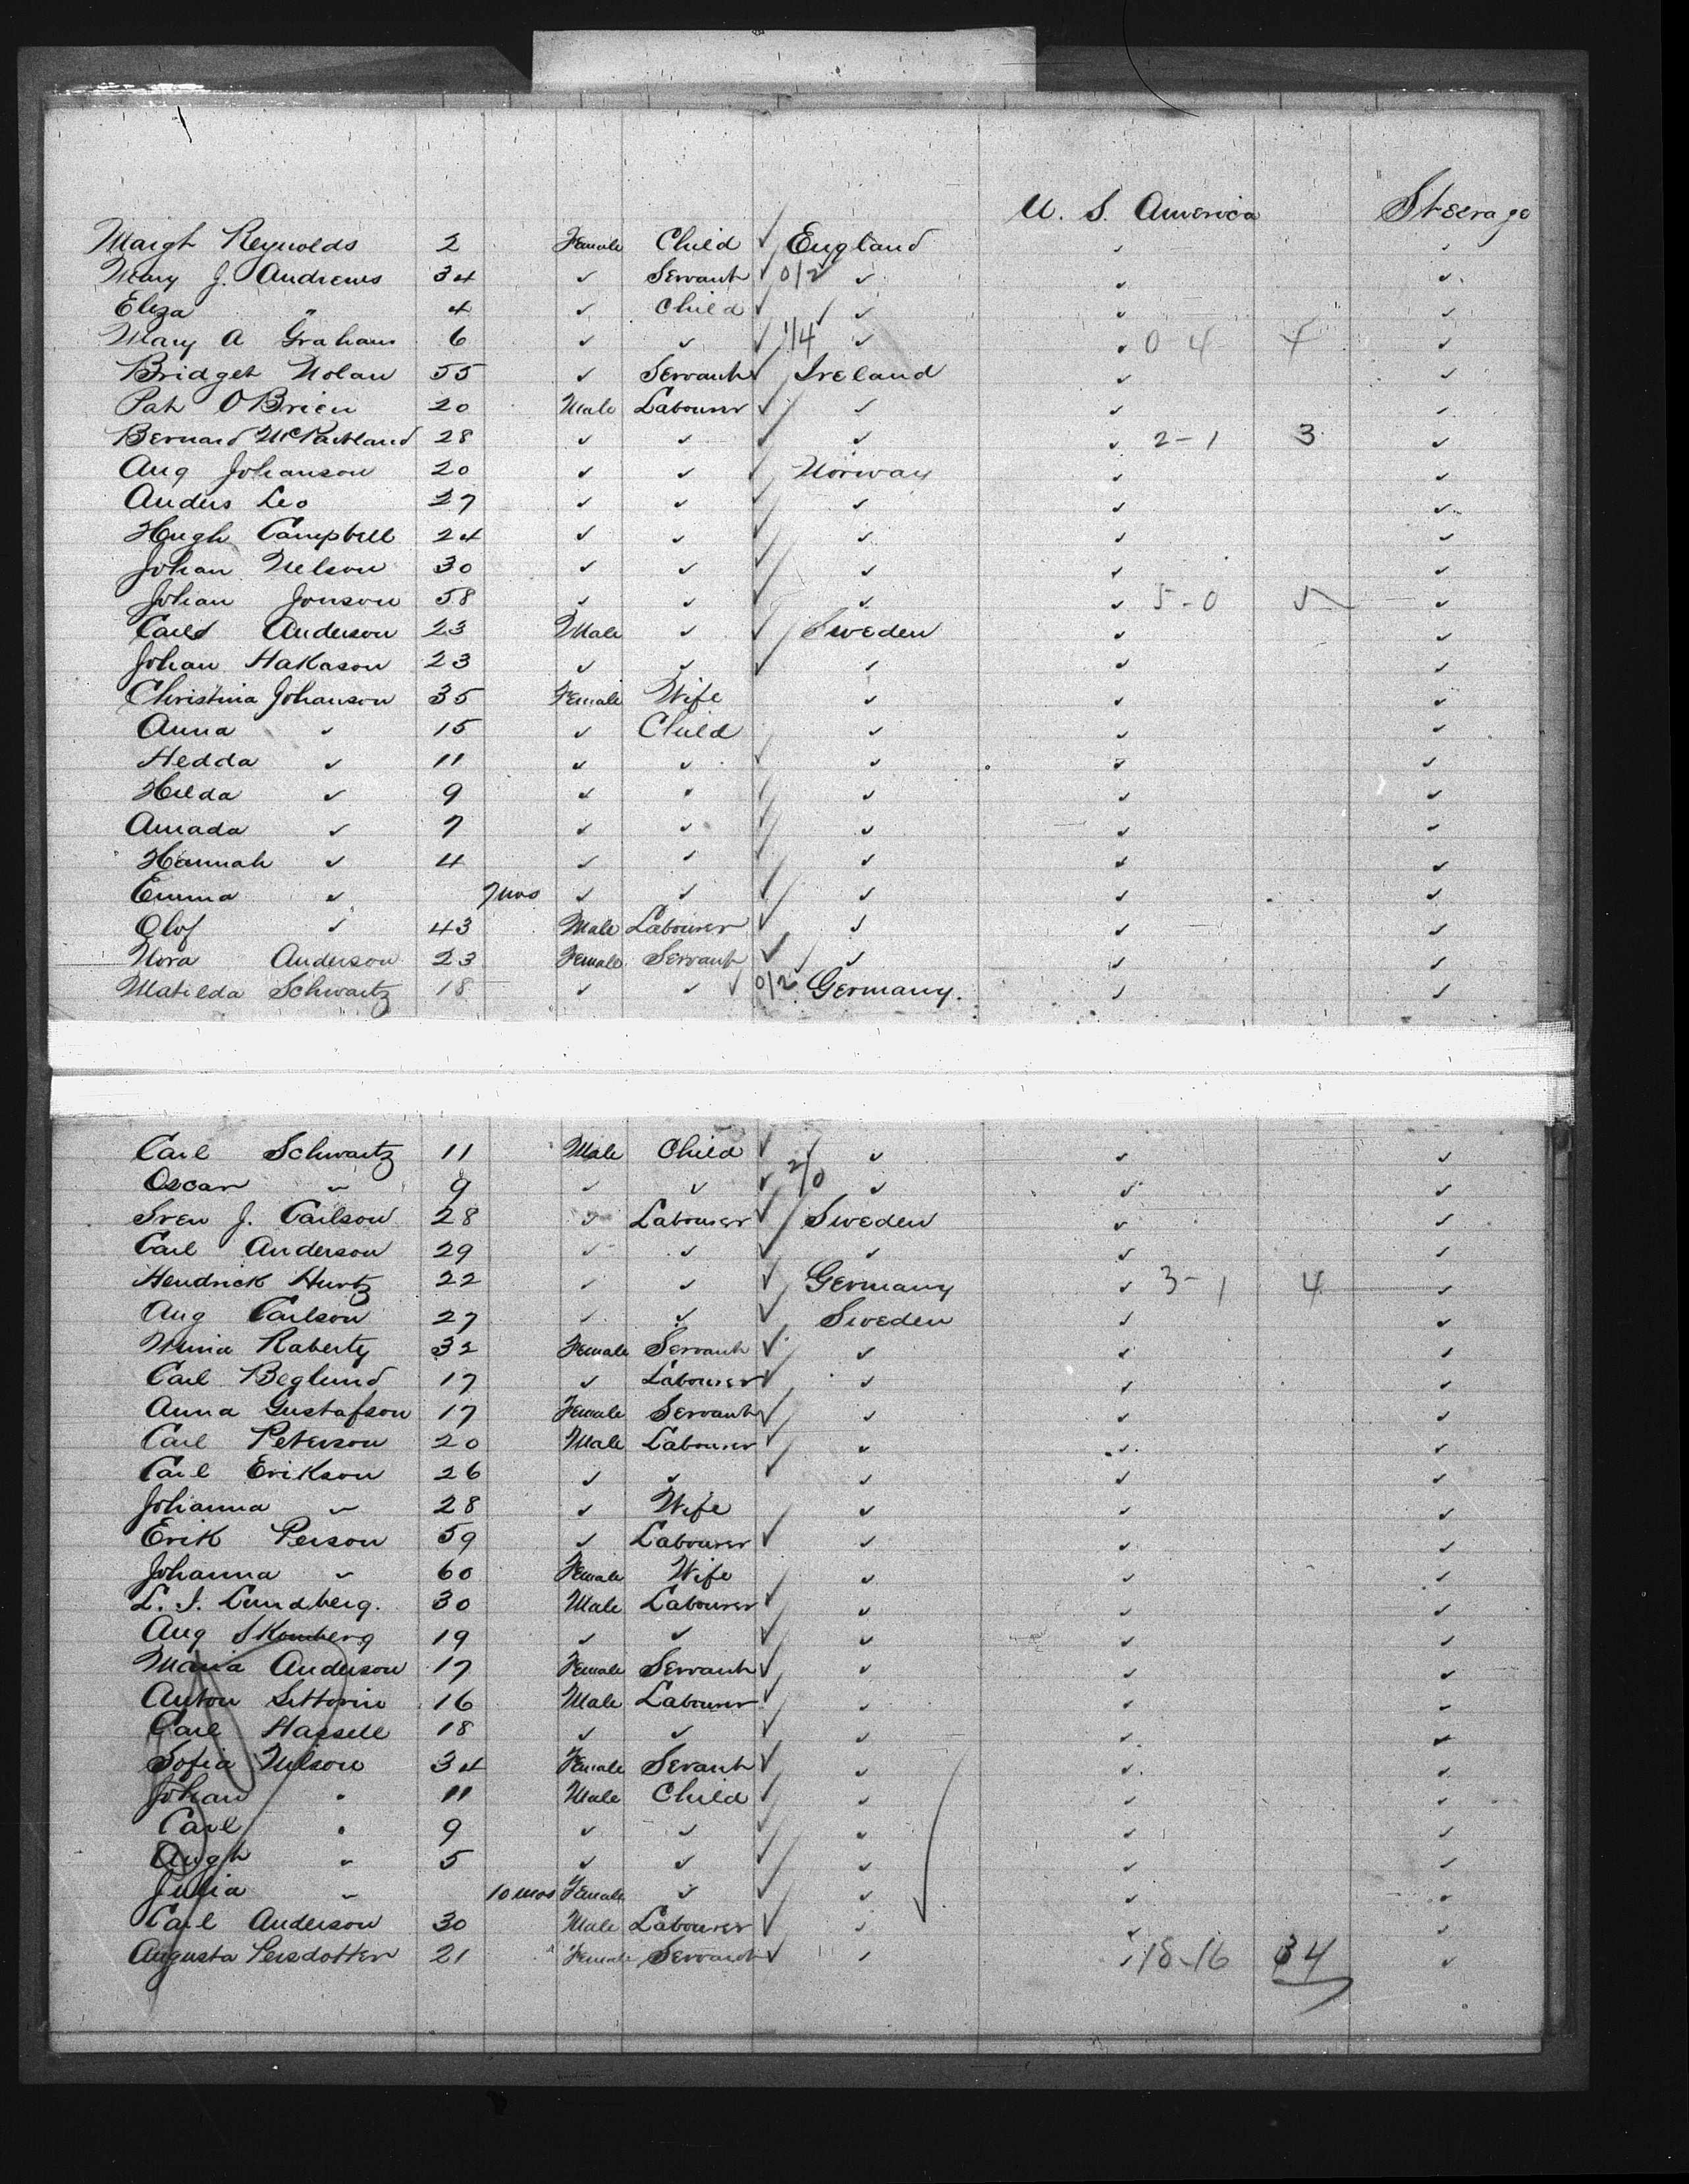 U. S. America Steerage
Margt Reynolds 2 Female Child ✓ England ✓ ✓
Mary J. Andrews 34 ✓ Servant ✓ 0/2 ✓ ✓ ✓
Eliza " 4 ✓ Child ✓ ✓ ✓ ✓
Mary A Graham 6 ✓ ✓ ✓ 1/4 ✓ ✓ 0-4 4 ✓
Bridget Nolan 55 ✓ Servant ✓ Ireland ✓ ✓
Pat O'Brien 20 Male Labourer ✓ ✓ ✓ ✓
Bernard McPartland 28 ✓ ✓ ✓ ✓ ✓ 2-1 3 ✓
Aug Johanson 20 ✓ ✓ ✓ Norway ✓ ✓
Anders Leo 27 ✓ ✓ ✓ ✓ ✓ ✓
Hugh Campbell 24 ✓ ✓ ✓ ✓ ✓ ✓
Johan Nelson 30 ✓ ✓ ✓ ✓ ✓ ✓
Johan Jonson 58 ✓ ✓ ✓ ✓ ✓ 5-0 5 ✓
Carl Anderson 23 Male ✓ ✓ Sweden ✓ ✓
Johan Hakason 23 ✓ ✓ ✓ ✓ ✓ ✓
Christina Johanson 35 Female Wife ✓ ✓ ✓
Anna ✓ 15 ✓ Child ✓ ✓ ✓
Hedda ✓ 11 ✓ ✓ ✓ ✓ ✓ ✓
Hilda ✓ 9 ✓ ✓ ✓ ✓ ✓ ✓
Amada ✓ 7 ✓ ✓ ✓ ✓ ✓ ✓
Hannah ✓ 4 ✓ ✓ ✓ ✓ ✓ ✓
Emma ✓ 7 mos ✓ ✓ ✓ ✓ ✓ ✓
Olof ✓ 43 Male Labourer ✓ ✓ ✓ ✓
Nora Anderson 23 Female Servant ✓ ✓ ✓ ✓
Matilda Schwartz 18 ✓ ✓ ✓ 0/2 Germany. ✓ ✓
Carl Schwartz 11 Male Child ✓ ✓ ✓ ✓
Oscar " 9 ✓ ✓ ✓ 2/0 ✓ ✓ ✓
Sven J. Carlson 28 ✓ Labourer ✓ Sweden ✓ ✓
Carl Anderson 29 ✓ ✓ ✓ ✓ ✓ ✓
Hendrick Hurtz 22 ✓ ✓ ✓ Germany ✓ 3-1 4 ✓
Aug Carlson 27 ✓ ✓ ✓ Sweden ✓ ✓
Minia Raberty 32 Female Servant ✓ ✓ ✓ ✓
Carl Beglund 17 ✓ Labourer ✓ ✓ ✓ ✓
Anna Gustafson 17 Female Servant ✓ ✓ ✓ ✓
Carl Peterson 20 Male Labourer ✓ ✓ ✓ ✓
Carl Erikson 26 ✓ ✓ ✓ ✓ ✓ ✓
Johanna " 28 ✓ Wife ✓ ✓ ✓
Erik Person 59 ✓ Labourer ✓ ✓ ✓ ✓
Johanna " 60 Female Wife ✓ ✓ ✓
L. J. Lundberg. 30 Male Labourer ✓ ✓ ✓ ✓
Aug Skomberg 19 ✓ ✓ ✓ ✓ ✓ ✓
Maria Anderson 17 Female Servant ✓ ✓ ✓ ✓
Anton 16 Male Labourer ✓ ✓ ✓ ✓
Carl Hassell 18 ✓ ✓ ✓ ✓ ✓ ✓
Sofia Nilson 34 Female Servant ✓ ✓ ✓ ✓
Johan " 11 Male Child ✓ ✓ ✓ ✓
Carl " 9 ✓ ✓ ✓ ✓ ✓ ✓
Augh " 5 ✓ ✓ ✓ ✓ ✓ ✓
Julia " 10 mos Female ✓ ✓ ✓ ✓ ✓
Carl Anderson 30 Male Labourer ✓ ✓ ✓ ✓
Augusta Persdotter 21 Female Servant ✓ ✓ ✓ 18-16 34 ✓